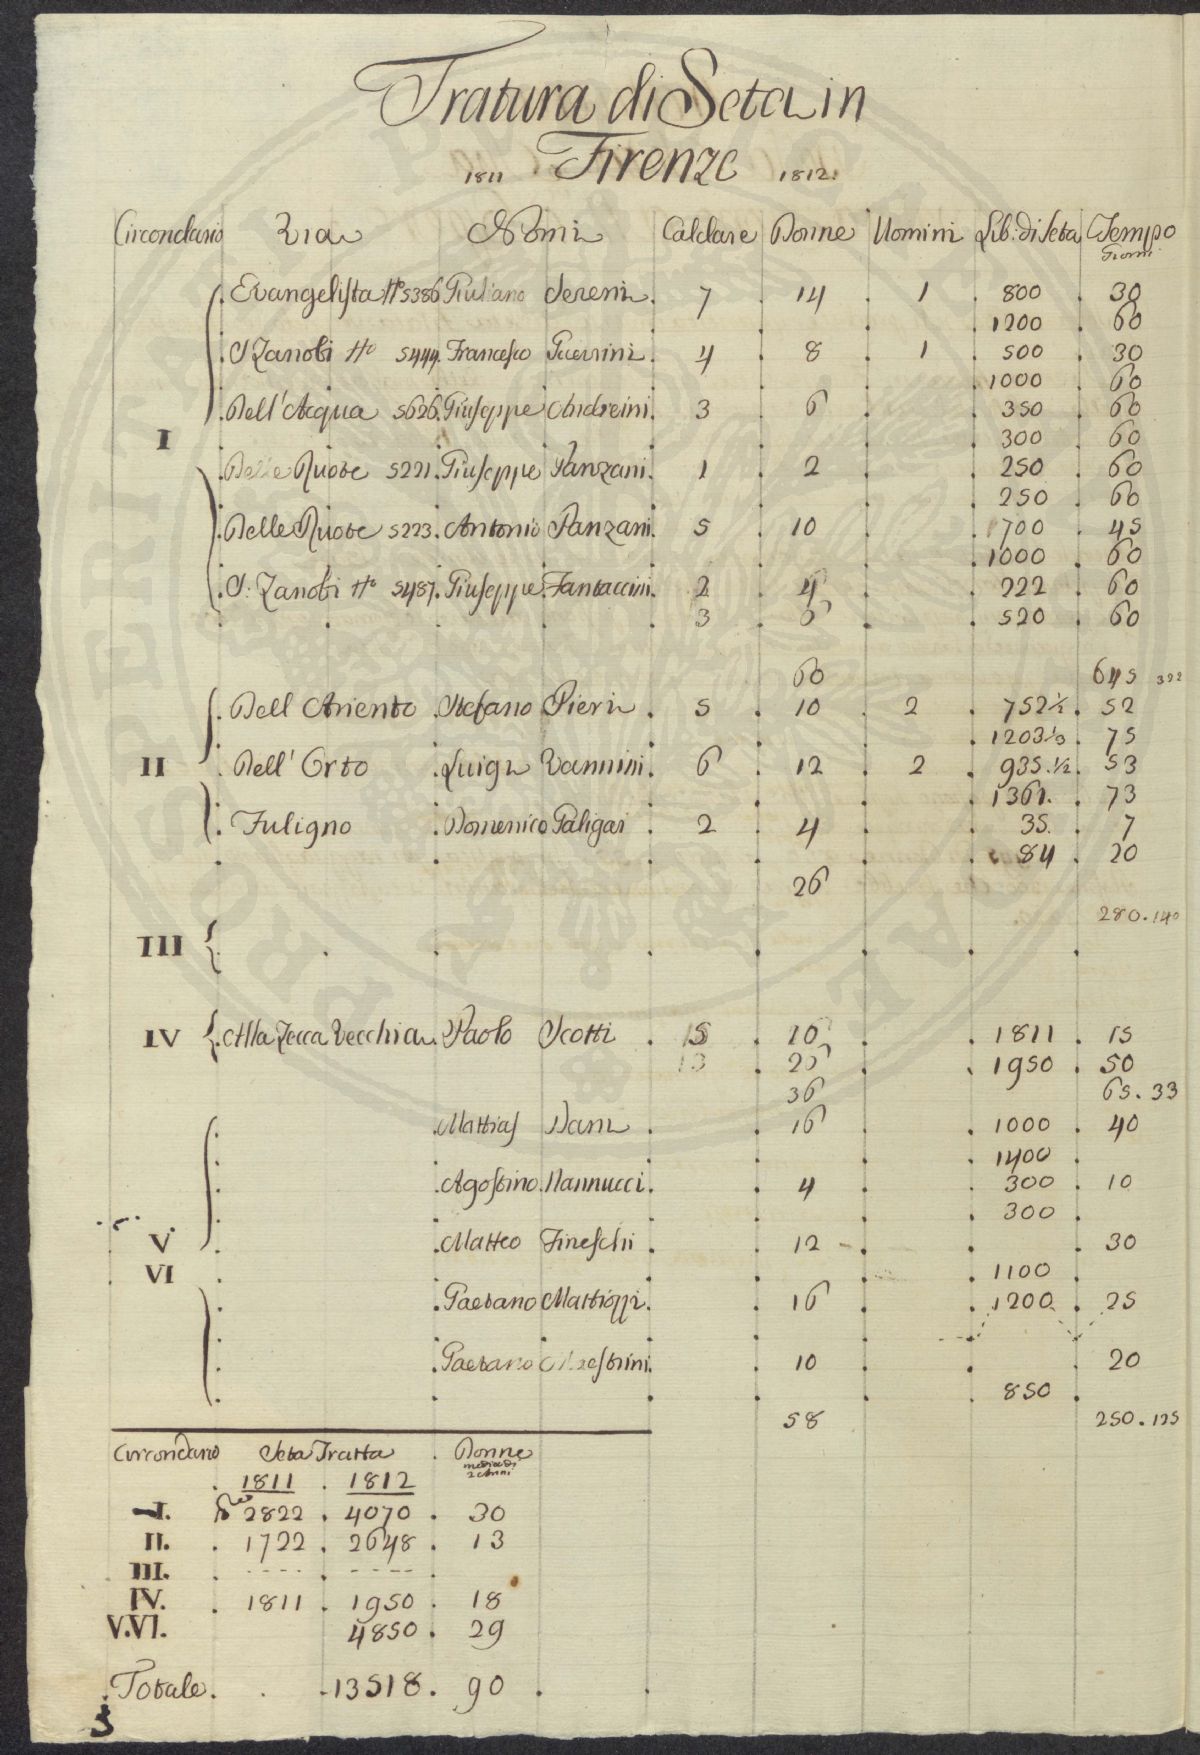 Tratura di Seta in
Firenze
1811 1812.
Circondario Via Nomi Caldare Donne Uomini Lib. di Seta Tempo
Giorni
Evangelista N° 5386. Giuliano Sereni. 7 . 14 . 1 . 800 . 30
1200 . 60
S Zanobi N° 5444. Francesco Guerrini. 4 . 8 . 1 . 500 . 30
1000 . 60
Dell' Acqua 5626. Giuseppe Andreini. 3 . 6 . 350 . 60
I 300 . 60
Delle Ruote 5221. Giuseppe Panzani. 1 . 2 . 250 . 60
250 . 60
Delle Ruote 5223. Antonio Panzani. 5 . 10 . 700 . 45
1000 . 60
S. Zanobi N° 5487. Giuseppe Fantaccini. 2 . 4 . 222 . 60
3 . 6 . 520 . 60
60 645 322
Dell Ariento . Stefano Pieri . 5 . 10 . 2 . 752 1/2 . 52
1203 1/3 . 75
II Dell' Orto . Luigi Vannini. 6 . 12 . 2 . 935. 1/2 . 53
1361. . 73
Fuligno . Domenico Paligai . 2 . 4 . 35. . 7
84 . 20
26
280.140
III
IV Alla Zecca Vecchia Paolo Scotti . 15 . 16 . 1811 . 15
13 . 20 . 1950 . 50
36 65. 33
Mattias Dani . 16 . 1000 . 40
1400 .
Agostino Nannucci. 4 . 300 . 10
300 .
V. Matteo Fineschi . 12 . 30
VI 1100 .
Gaetano Mattiozzi. 16 . 1200 . 25
Gaetano Maestrini. 10 . 20
850 .
58 250.125
Circondario Seta Tratta . Donne
media di
2 Anni
1811 . 1812
I. 2822 . 4070 . 30
II. . 1722 . 2648 . 13
III. . ---- . ---- .
IV. . 1811 . 1950 . 18
V.VI. 4850 . 29
Totale. . 13518 . 90
3
PROSPERITATI PUBLICAE